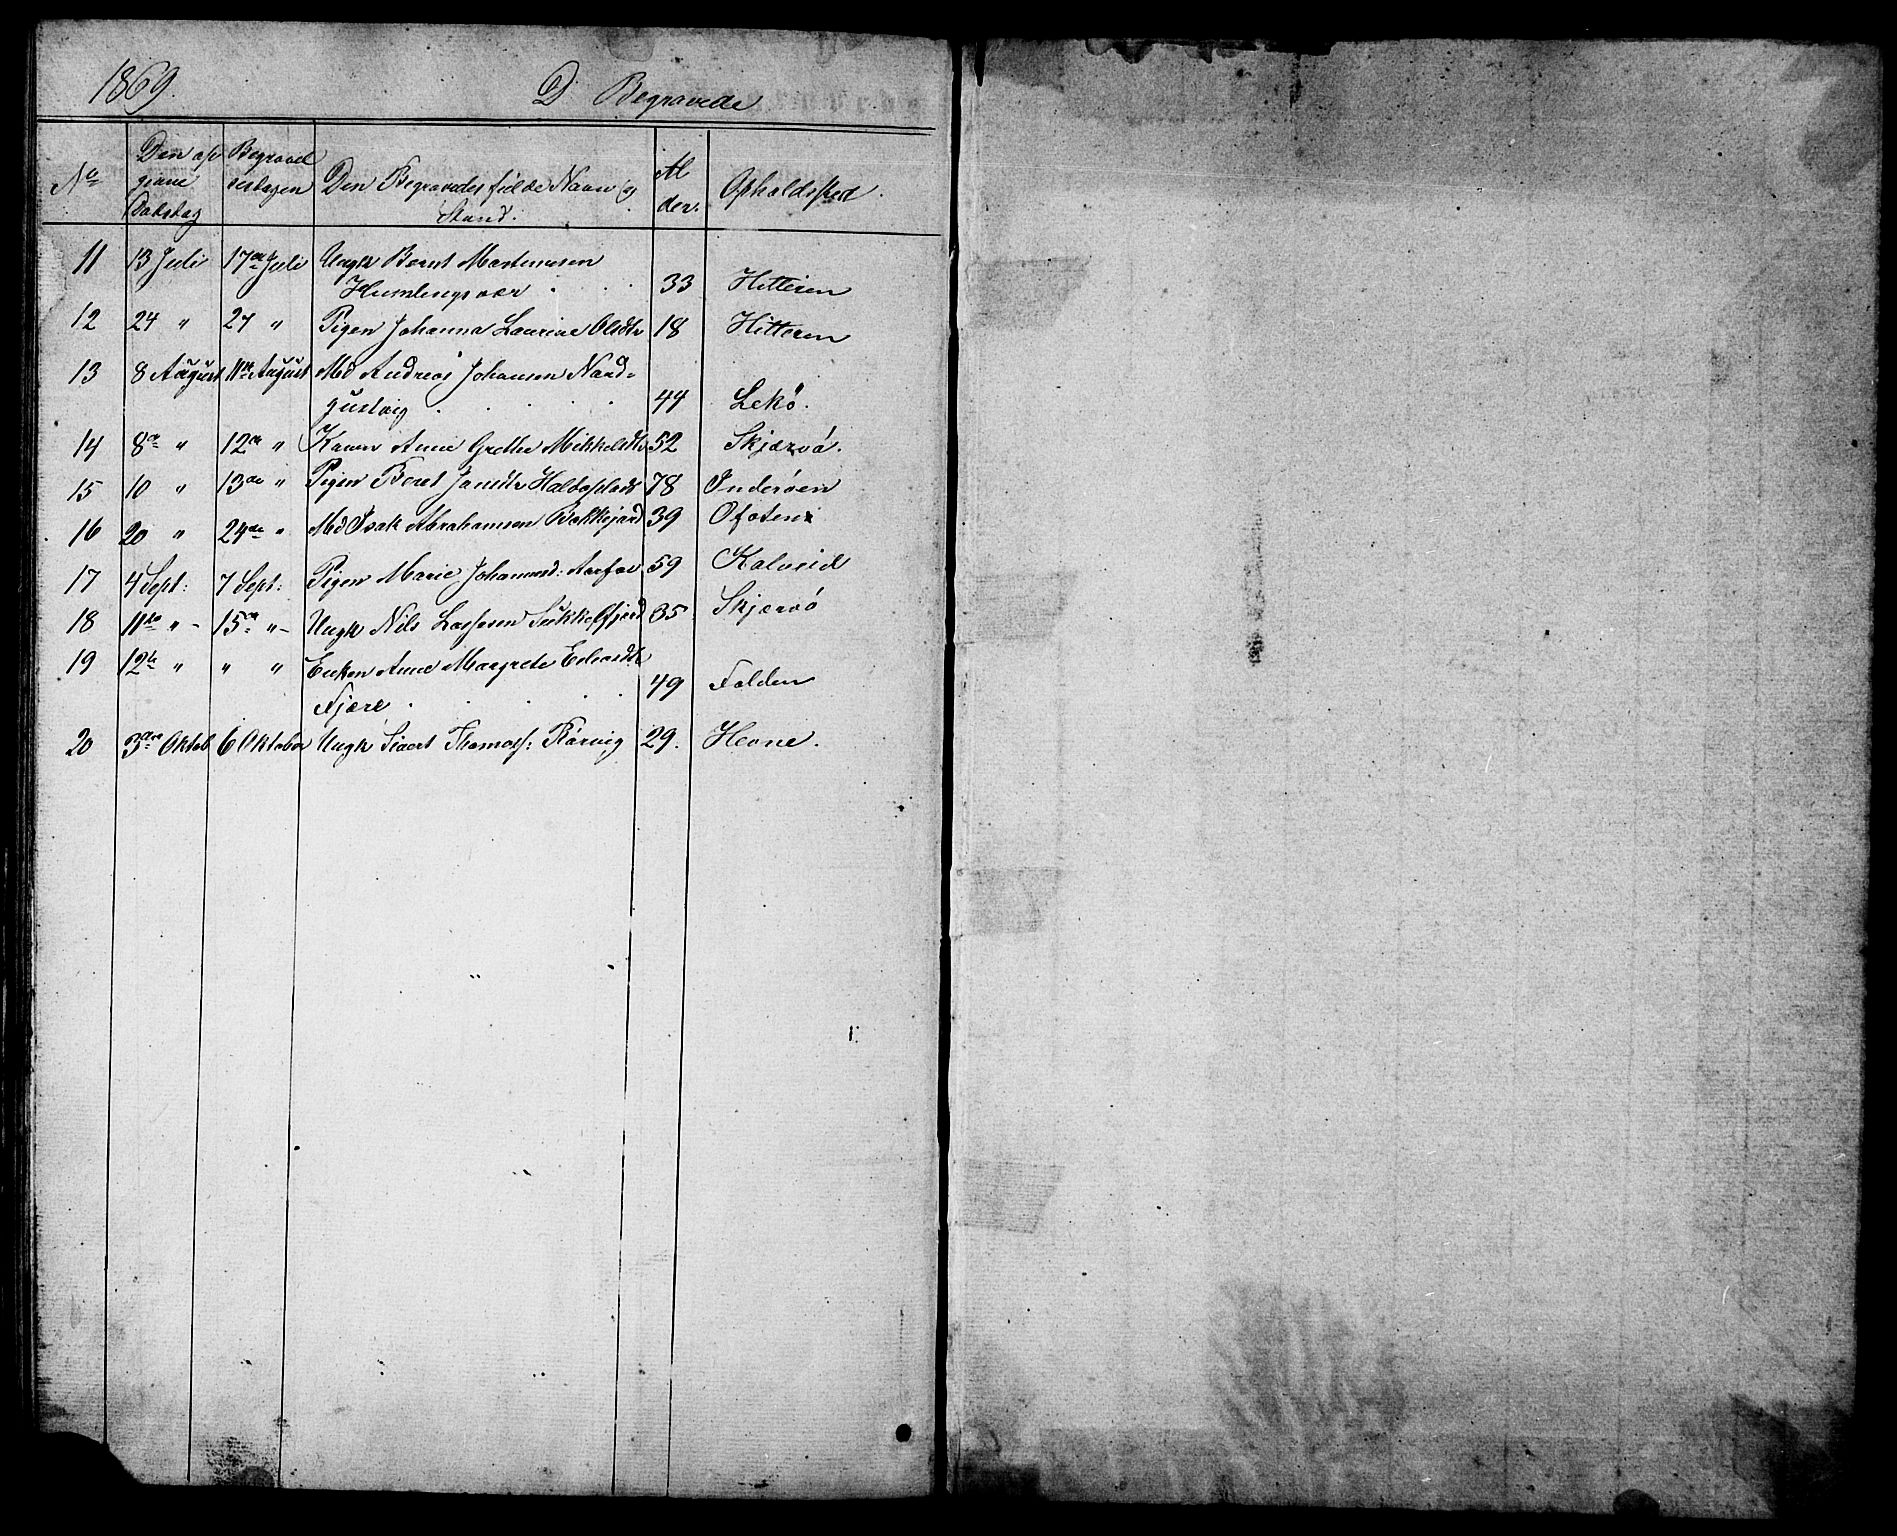 1869. D. Begravede
No Den op givne Dødsdag Begravel sesdagen Den Begravedes fulde Navn og Stand. Al der. Opholdssted.
11 13 Juli 17de Juli Ungk Bernt Martinusen
Humlingsvær . . . 33 Hitteren
12 24 " 27 " Pigen Johanna Laurine Olsdtr 18 Hitteren
13 8 August 11te August Md Andreas Johansen Nord-
gustvig . . . . . 44 Lekø.
14 8de " 12de " Konen Anne Grethe Mikkelsdtr 52 Skjærvø.
15 10 " 13de " Pigen Beret Jansdtr 78 Inderøen
16 20 " 24de " Md Isak Abrahamsen Bakkejord 39 Ofoten
17 4 Sept: 7 Sept: Pigen Marie Johannesd: Aarfor 59 Kolvereid
18 11te " - 15de " - Ungk Nils Lassesen 35 Skjærvø
19 12te " " " Enken Anne Margrete Edvardtr
Fjære . . . . 49 Folden
20 3die Oktob 6 Oktober Ungk Sivert Thomass: Rørvig 29. Hevne.